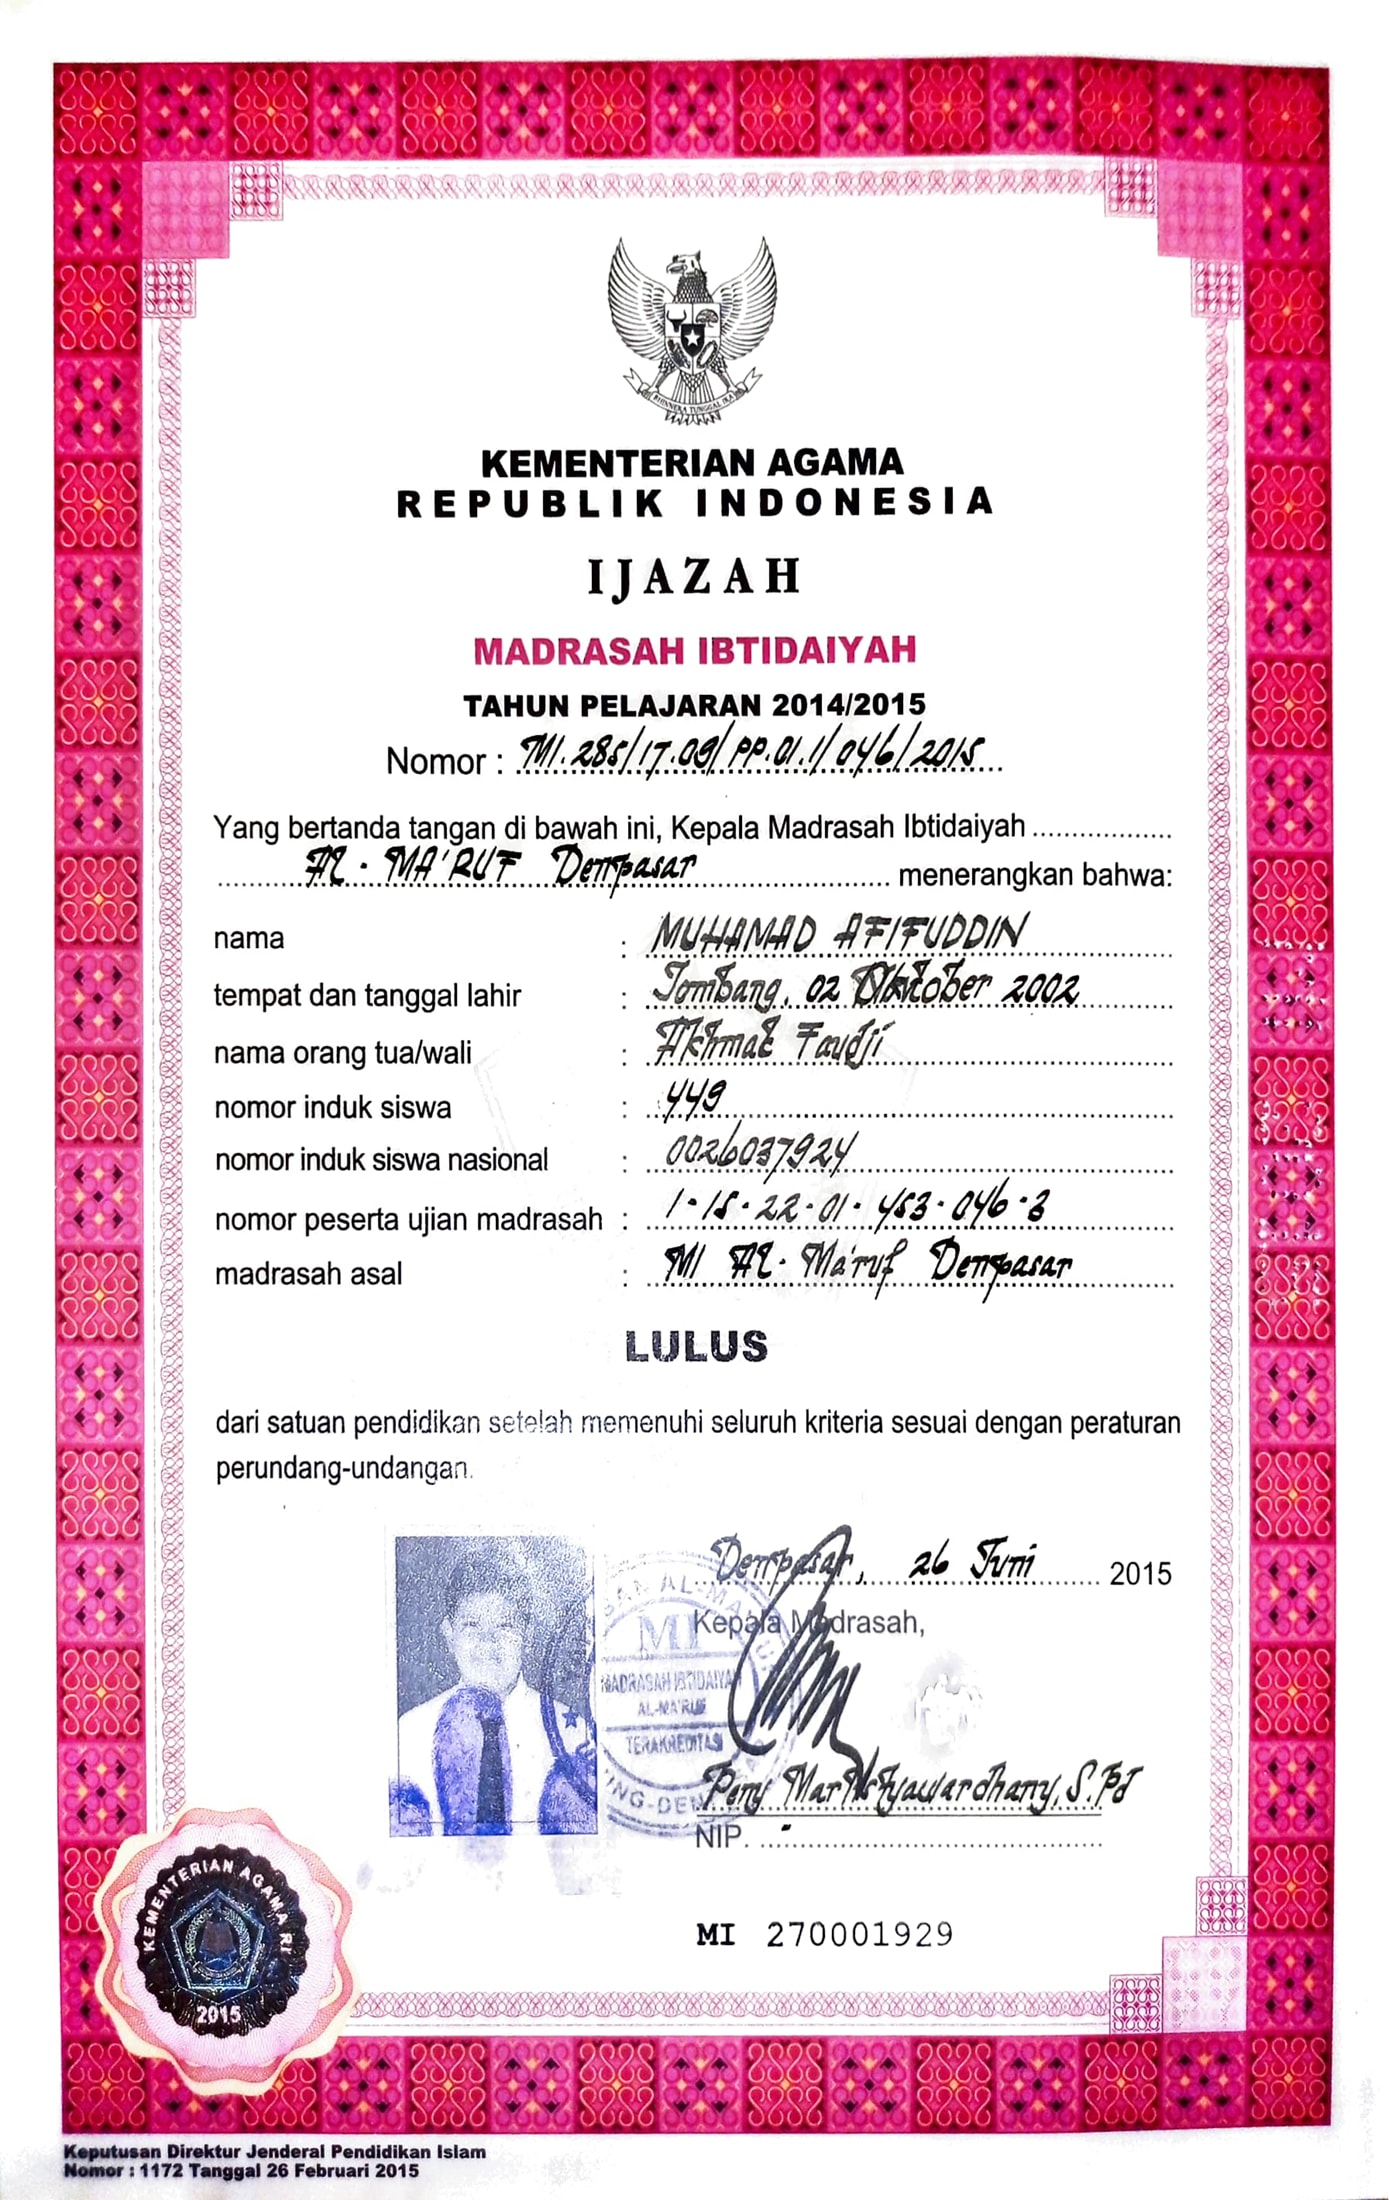 BHINNEKA TUNGGAL IKA
KEMENTERIAN AGAMA
REPUBLIK INDONESIA
IJAZAH
MADRASAH IBTIDAIYAH
TAHUN PELAJARAN 2014/2015
Nomor : MI.285/17.09/PP.01.1/046/2015
Yang bertanda tangan di bawah ini, Kepala Madrasah Ibtidaiyah
AL - MA'RUF Denpasar menerangkan bahwa:
nama : MUHAMAD AFIFUDDIN
tempat dan tanggal lahir : Jombang, 02 Oktober 2002
nama orang tua/wali : Akhmad Faudji
nomor induk siswa : 449
nomor induk siswa nasional : 0026037924
nomor peserta ujian madrasah : 1-15-22-01-453-046-3
madrasah asal : MI AL-Ma'ruf Denpasar
LULUS
dari satuan pendidikan setelah memenuhi seluruh kriteria sesuai dengan peraturan
perundang-undangan.
Denpasar, 26 Juni 2015
Kepala Madrasah,
MI
MADRASAH IBTIDAIYAH
AL-MA'RUF
TERAKREDITASI
S.Pd
NIP. -
MI 270001929
KEMENTERIAN AGAMA RI
2015
Keputusan Direktur Jenderal Pendidikan Islam
Nomor : 1172 Tanggal 26 Februari 2015